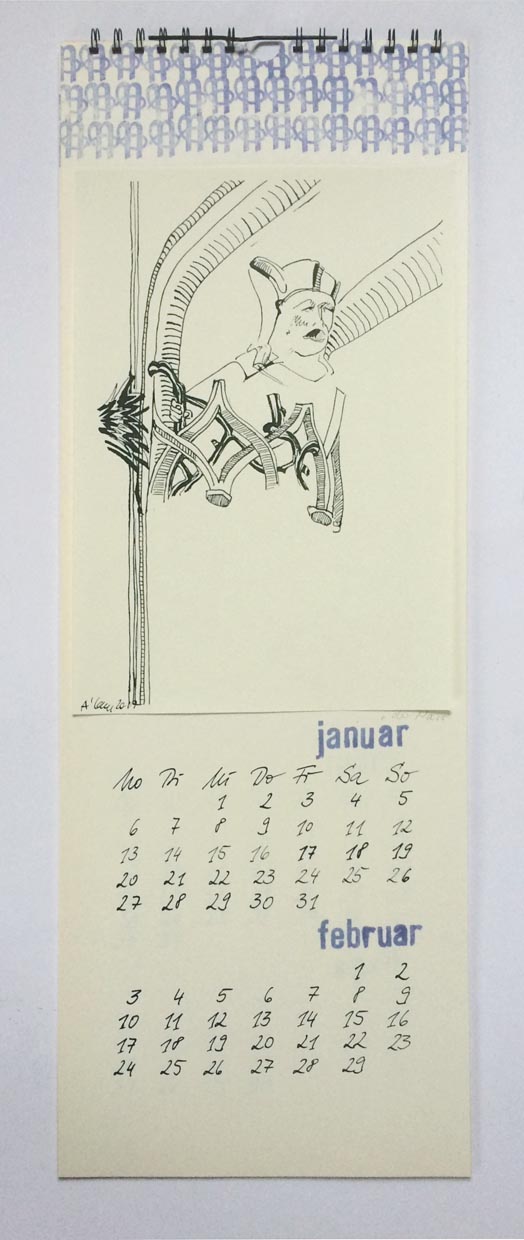 2019
januar
Mo Di Mi Do Fr Sa So
1 2 3 4 5
6 7 8 9 10 11 12
13 14 15 16 17 18 19
20 21 22 23 24 25 26
27 28 29 30 31
februar
1 2
3 4 5 6 7 8 9
10 11 12 13 14 15 16
17 18 19 20 21 22 23
24 25 26 27 28 29